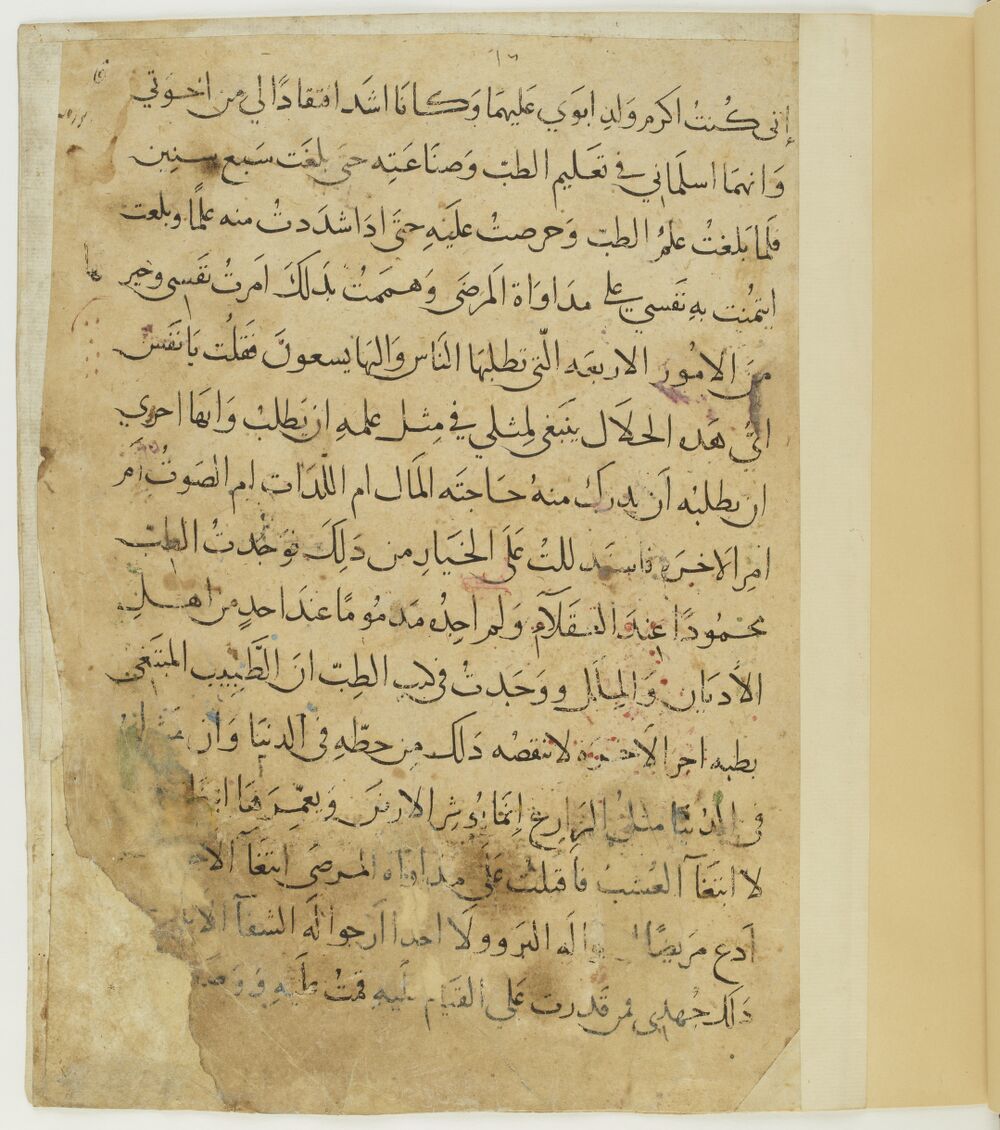 ١٦
إني كُنتُ اكرم ولد ابوَي عَليهمَا وَكانَا اشَد افتقادًا لي من اخوَتي
وَانهمَا اسلمَاني في تعَليم الطبّ وَصنَاعَتِه حتى بلغَت سَبع سنِين
فلما بَلغتُ علمُ الطبّ وَحرصتُ علَيهِ حتَّى ادَا شدَدتُ منه علمًا وبلعت
ايتمُنت بهِ نَفسي على مدَاوَاة المَرضَى وَهمَمتُ بدَلكَ امَرتُ نفَسِي وخير
من الامُور الاربعَه الّتي تطلبهَا النَاس وَاليهَا يسعونَ فقَلُت يَا نَفَس
ائيُّ هَده الحَلَال ينَبَغي لِمثلي في مِثل علمهِ ان يَطلبُ وَايهَا احري
ان يطلبُه اَن يدرك منهُ حَاجتَه المَال ام اللّدَات ام الصَوتُ اَم
امر الاَخرَه فاستَدللتُ عَلَى الخيَار من دَلِكَ فوَجَدتُ الطبّ
محمُودًا عِندَ العُقَلآء وَلم اجِدُه مَدمُومًا عندَ احدٍ من اهلِ
الأَديَان وَالمِلَل ووَجَدتُ في كتب الطِبّ انَ الطَّبِيب المُبتَغي
بطبه اجر الاَخرَة لا تنقصُه دَلك مِن حظّهِ في الدنيَا وَان
في الدُنيَا مثلُ الزَارِع اِنمَا يُثِير الارضَ وَيعَمّرهَا
لا ابتغَآ العُشبُ فاَقبَلتُ عَلَى مدَاواة المرضَى ابتغَآ
اَدع مَريضًا له البَرو ولَا احدا ارجوا لَه الشفَآ
دَلك جُهدي فمن قَدرت عَلى القيَام عَليهِ قمَتُ عَلَيهِ